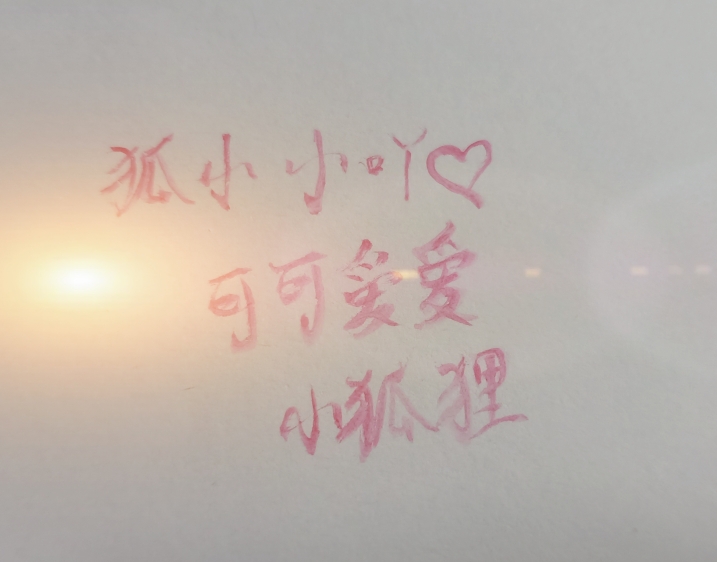 狐小小吖♡
可可爱爱
小狐狸